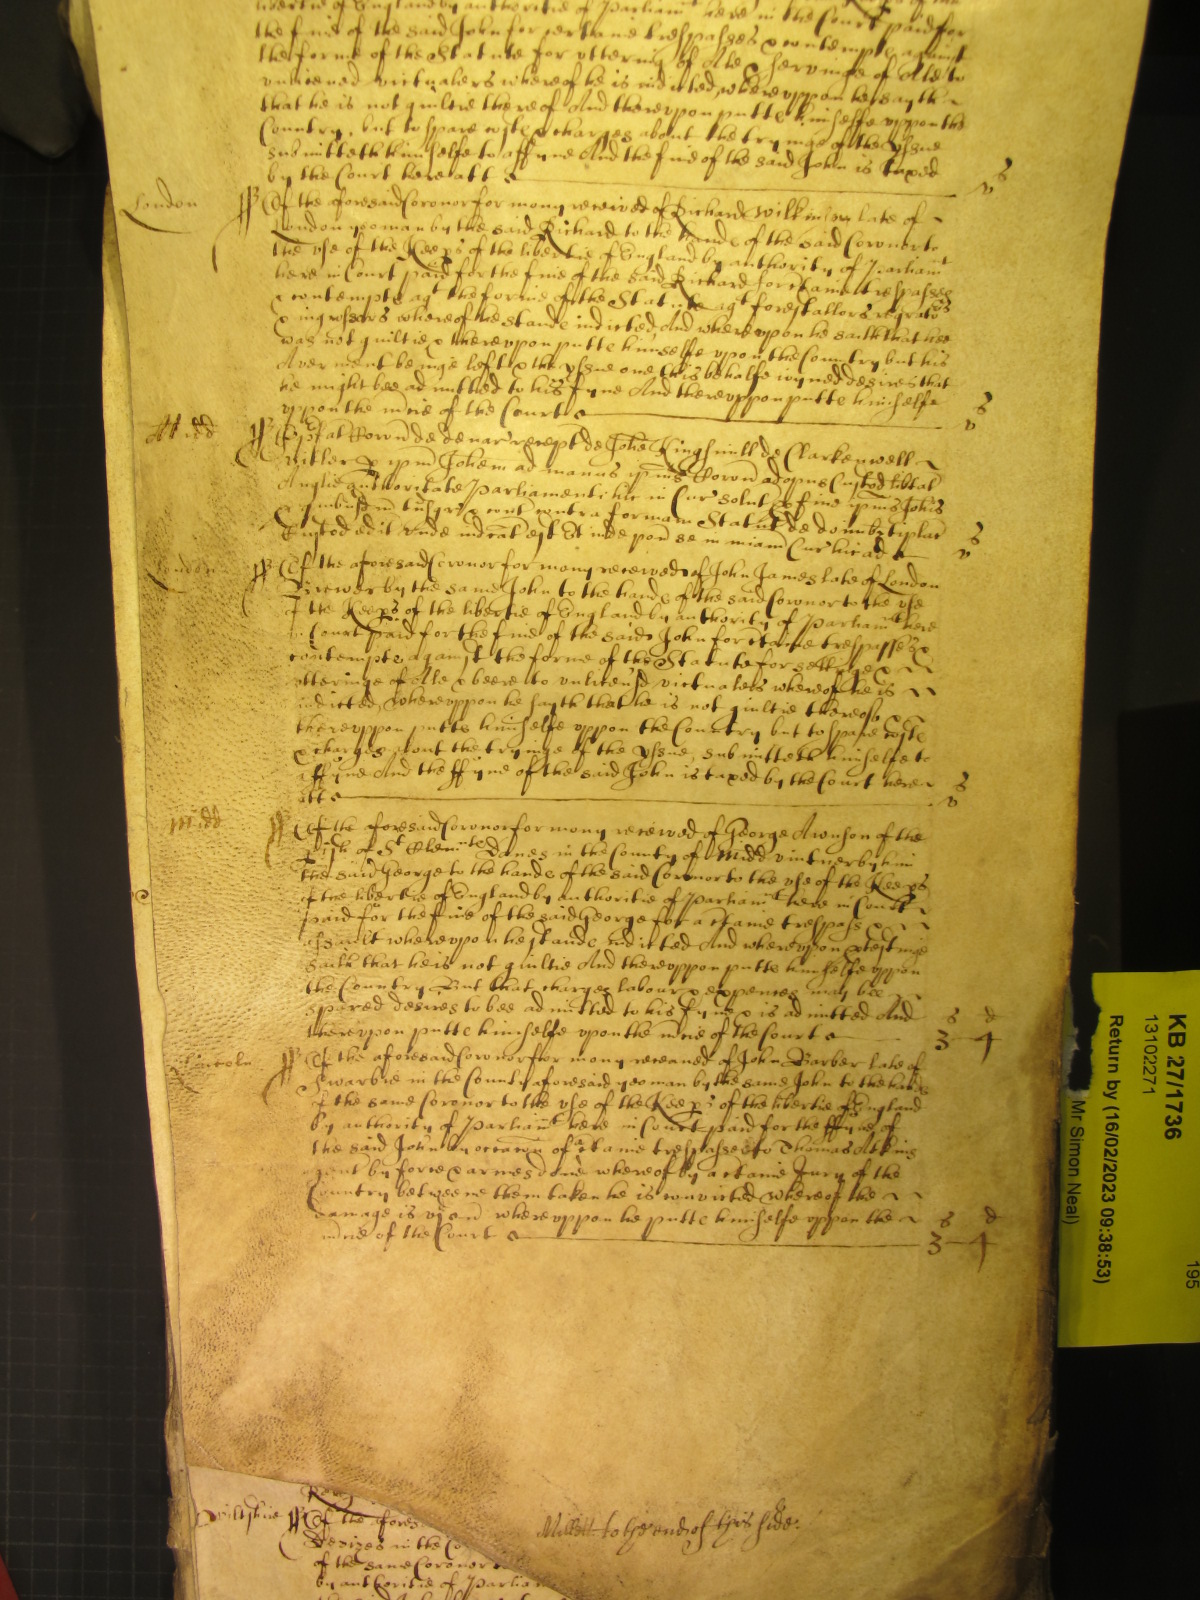 libertie of England by authoritie of Parliamt here in the Court paid for
the fine of the said John for certaine trespasses & contempts against
the forme of the Statute for uttering of Ale & servinge of Ale to
unlicenced victualers whereof he is indicted, whereuppon he sayth
that he is not guiltie thereof And thereuppon putts himselfe uppon the
Country, but to spare costs & charges about the tryinge of the yssue
submitteth himselfe to a ffyne And the fine of the said John is taxed
by the Court here att
s
v
London
Of the aforesaid Coronor for mony received of Richard Wilkinson late of
London yeoman by the said Richard to the hands of the said Coronor to
the use of the Keeprs of the libertie of England by authority of Parliamt
here in Court paid for the fine of the said Richard for certaine trespasses
& contempts agt the forme of the Statute agt forestallors regrators
& ingrossers whereof he stands indicted And whereupon he saith that hee
was not guiltie & thereuppon putts himselfe uppon the Country but his
Averment beinge left & the yssue one this behalfe ioyned desires that
he might bee admitted to his fyne And thereuppon putts himselfe
uppon the mcie of the Court
s
v
Midd
de denar recept de Johe Kinghmill de Clarkenwell
vitler p ipm Johem ad manus ipius Coron ad opus Custod libtat
Anglie authoritate Parliamenti hic in Cur solut p fine ipius Johis
p quibusdm tnsgr & cont contra formam Statut de
Custod edit unde indicat est Et inde pon se in miam Cur huic ad
s
v
London
Of the aforesaid Coronor for mony received of John James late of London
Brewer by the same John to the hands of the said Coronor to the use
of the Keeprs of the libertie of England by authority of Parliamt here
in Court paid for the fine of the said John for certaine trespasses &
contempts against the forme of the Statute for sellinge &
utteringe of Ale & beere to unlicensd victualers whereof he is
indicted, whereuppon he sayth that he is not guiltie thereof &
thereuppon putts himselfe uppon the Country but to spare costs
& charges about the tryinge of the yssue, submitteth himselfe to
a ffyne And the ffyne of the said John is taxed by the Court here
att
s
v
Midd
Of the aforesaid Coronor for mony received of George Awnson of the
Pish of St Clemnts Danes in the County of Midd vintner by him
the said George to the hands of the said Coronor to the use of the Keeprs
of the libertie of England by authoritie of Parliamt here in Court
paid for the fine of the said George for a certaine trespass &
assault whereupon he stands indicted And whereuppon ptestinge
saith that he is not guiltie And thereuppon putts himselfe uppon
the Country, But that charges labour & expences may bee
spared desires to bee admitted to his fyne & is admitted And
thereupon putts himselfe upon the mcie of the Court
s d
3 4
Lincoln
Of the aforesaid Coronor for mony receaved of John Barber late of
Swarbie in the County aforesaid yeoman by the same John to the hands
of the same Coronor to the use of the Keeprs of the libertie of England
by authority of Parliamt here in Court paid for the ffyne of
the said John by occasion of a certaine trespasse to Thomas Atkins
gent by force & armes done whereof by a certaine Jury of the
Country betweene them taken he is convicted whereof the
damage is vjs viijd whereuppon he putts himselfe uppon the
mcie of the Court
s d
3 4
Wiltshire
Of the afores
Devizes in the Co
of the same Coronor
by authoritie of Parlia
Millett to the end of this side.
KB 27/1736
13102271
Return by (16/02/2023 09:38:53)
Mr Simon Neal)
195